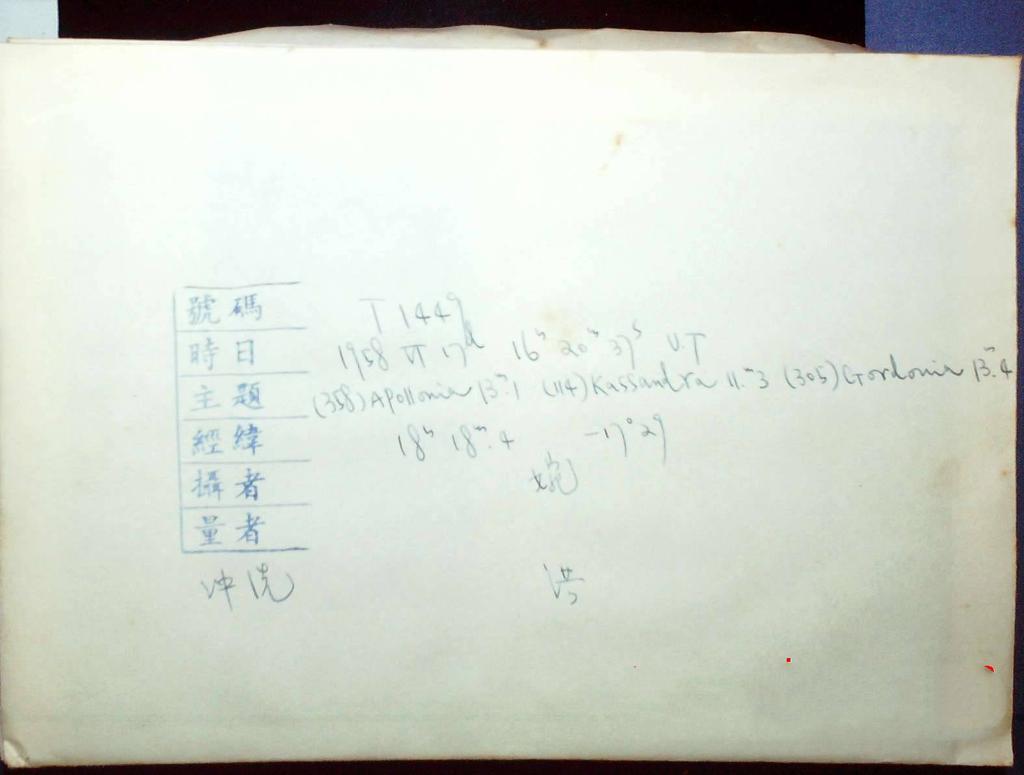 號碼 T 1449
時日 1958 VI 17d 16h 20m 37s U.T
主題 (358) Apollonia 13.m1 (114) Kassandra 11.m3 (305) Gordonia 13.m4
經緯 18h 18m.4 -17°29
攝者 婉
量者
冲洗 洪